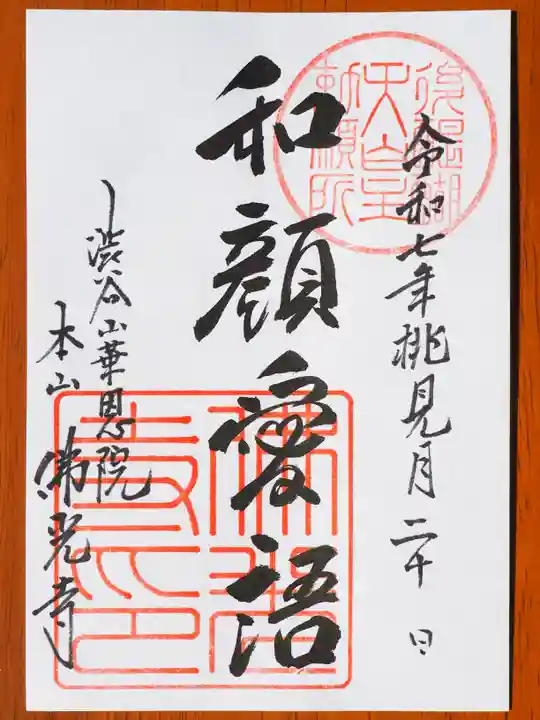 令和七年桃見月二十日
後醍醐
天皇
勅願所
和顔愛語
佛光
寺印
渋谷山華恩院
本山佛光寺